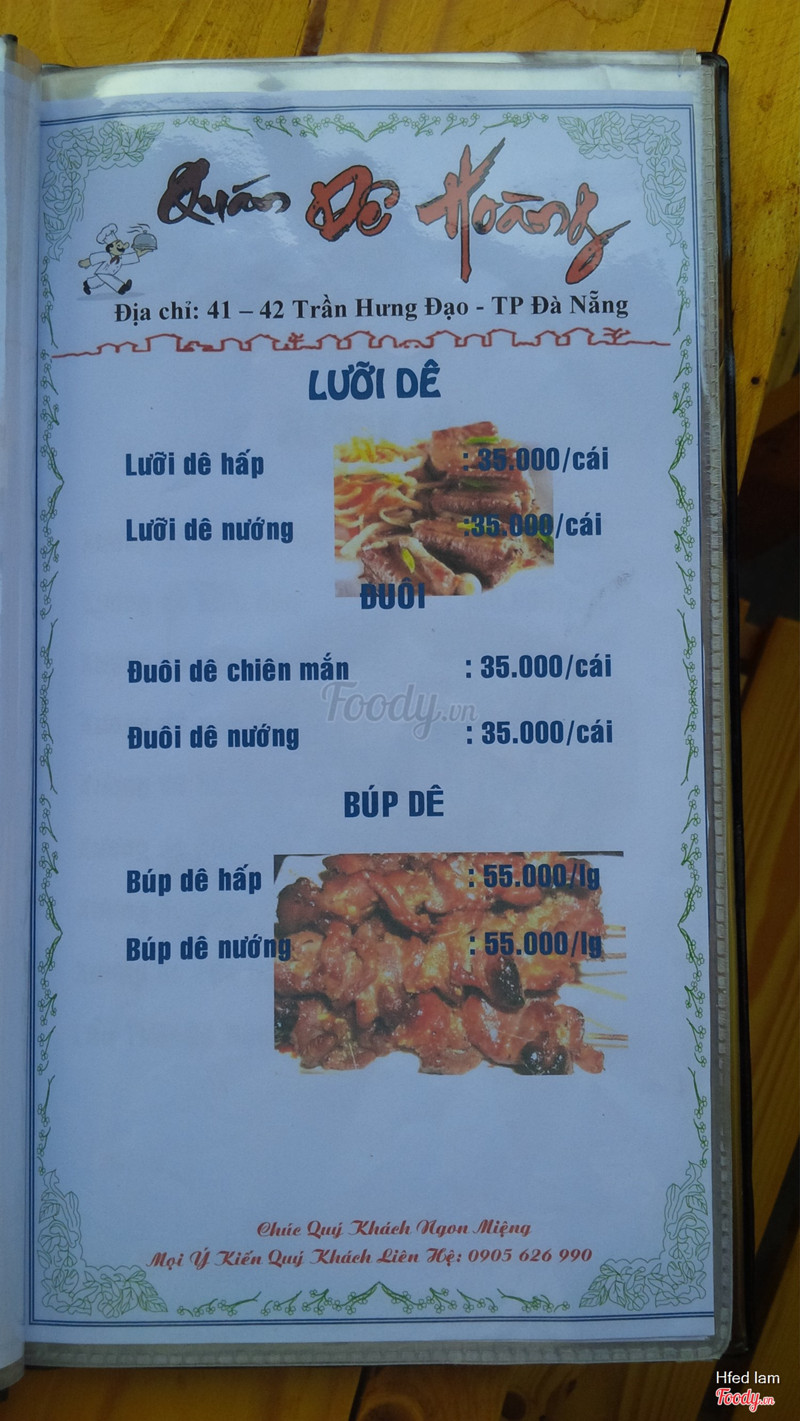 Quán Dê Hoàng
Địa chỉ: 41 – 42 Trần Hưng Đạo - TP Đà Nẵng
LƯỠI DÊ
Lưỡi dê hấp : 35.000/cái
Lưỡi dê nướng :35.000/cái
ĐUÔI
Đuôi dê chiên mắn : 35.000/cái
Foody.vn
Đuôi dê nướng : 35.000/cái
BÚP DÊ
Búp dê hấp : 55.000/lg
Búp dê nướng : 55.000/lg
Chúc Quý Khách Ngon Miệng
Mọi Ý Kiến Quý Khách Liên Hệ: 0905 626 990
Hfed lam
Foody.vn